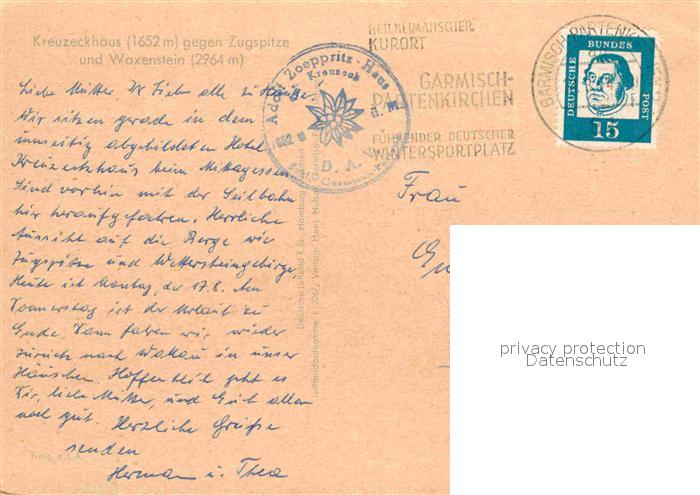 Kreuzeckhaus (1652 m) gegen Zugspitze
und Waxenstein (2964 m)
Liebe Mutter Ihr Lieben alle zu Hause
Wir sitzen gerade in dem
umseitig abgebildeten Hotel
Kreuzeckhaus beim Mittagessen
Sind vorhin mit der Seilbahn
hier heraufgefahren. Herrliche
Aussicht auf die Berge wie
Zugspitze und Wettersteingebirge,
Heute ist Montag, der 17.8. Am
Donnerstag ist der Urlaub zu
Ende. Dann fahren wir wieder
zurück nach in unser
Häuschen. Hoffentlich geht es
Dir, liebe Mutter, und Euch allen
noch gut. Herzliche Grüße
senden
Herman u. Thea
Adolf Zoeppritz-Haus
Kreuzeck
1652 m
ü. M.
D. A.
HEILKLIMATISCHER
KURORT
GARMISCH-
PARTENKIRCHEN
FÜHRENDER DEUTSCHER
WINTERSPORTPLATZ
GARMISCH-PARTENK
DEUTSCHE BUNDES POST
15
Frau
privacy protection
Datenschutz